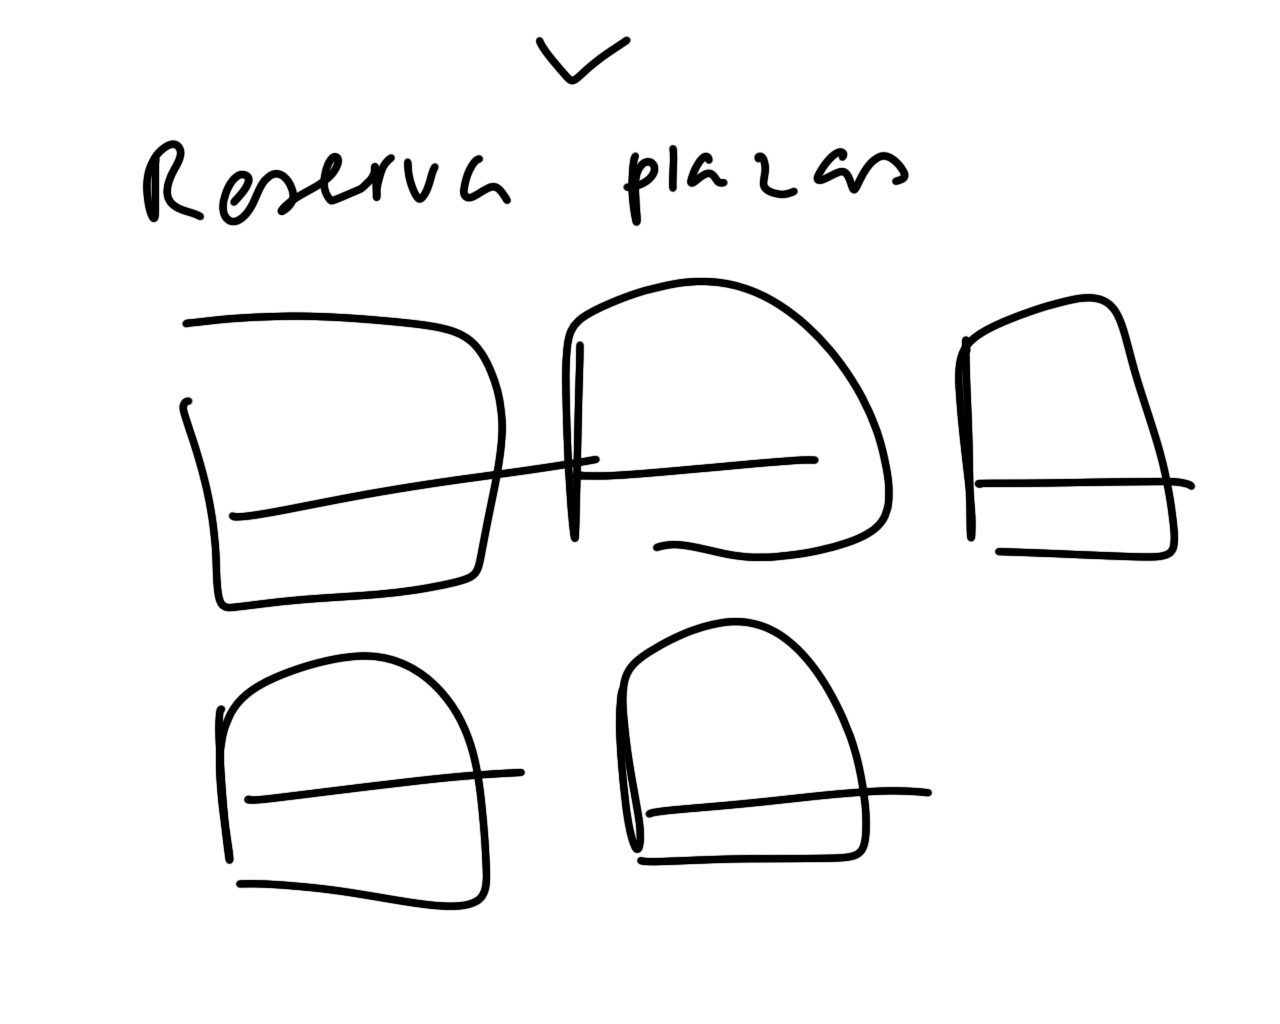 Reserva plazas